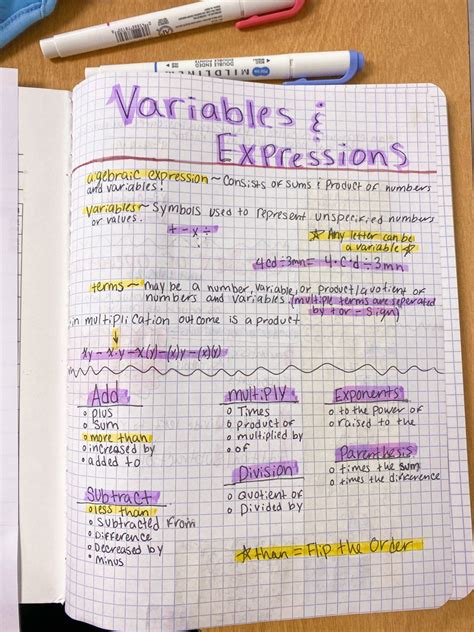 MILDLINER
DOUBLE ENDED
Variables &
Expressions
algebraic expression ~ Consists of sums & Product of numbers
and variables!
Variables ~ Symbols used to represent unspecified numbers
or values.
+ - x ÷
☆ Any letter can be
a variable ☆
4cd ÷ 3mn = 4 · C · d ÷ 3mn
terms ~ may be a number, variable, or product/quotient of
numbers and variables. (multiple terms are seperated
by + or - Sign)
in multiplication outcome is a product
xy - x·y - x(y) - (x)y - (x)(y)
Add
o plus
o Sum
o more than
o increased by
o added to
Subtract
o less than
o Subtracted From
o Difference
o Decreased by
o minus
multiply
o Times
o product of
o multiplied by
o of
Division
o Quotient of
o Divided by
Exponents
o to the power of
o raised to the
Parenthesis
o times the sum
o times the difference
☆ than = Flip the Order